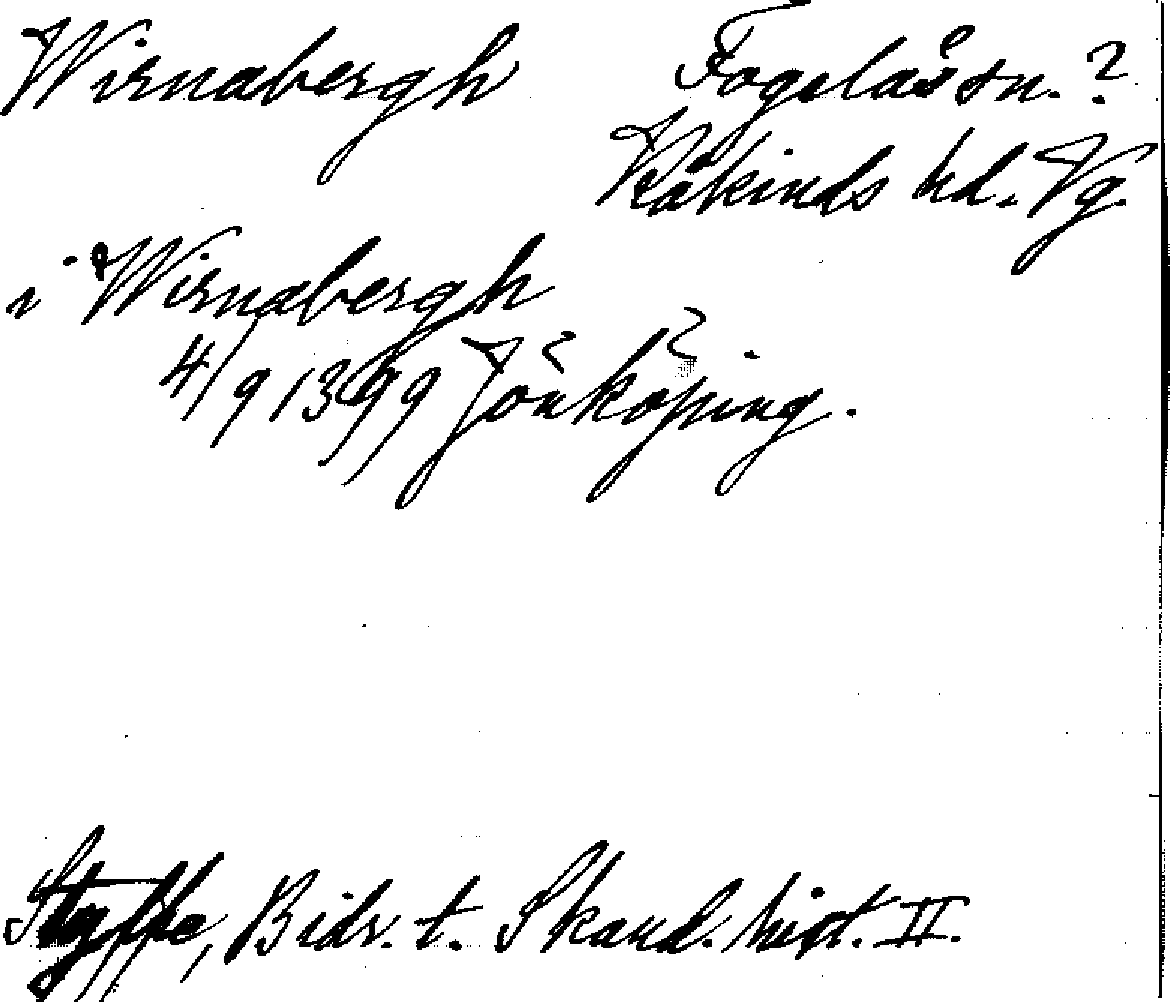 Wirnabergh Fogelås sn. ?
Kåkinds hd. Vg.
i Wirnabergh
4/9 1399 Jönköping.
Styffe, Bidr. t. Skand. hist. II.